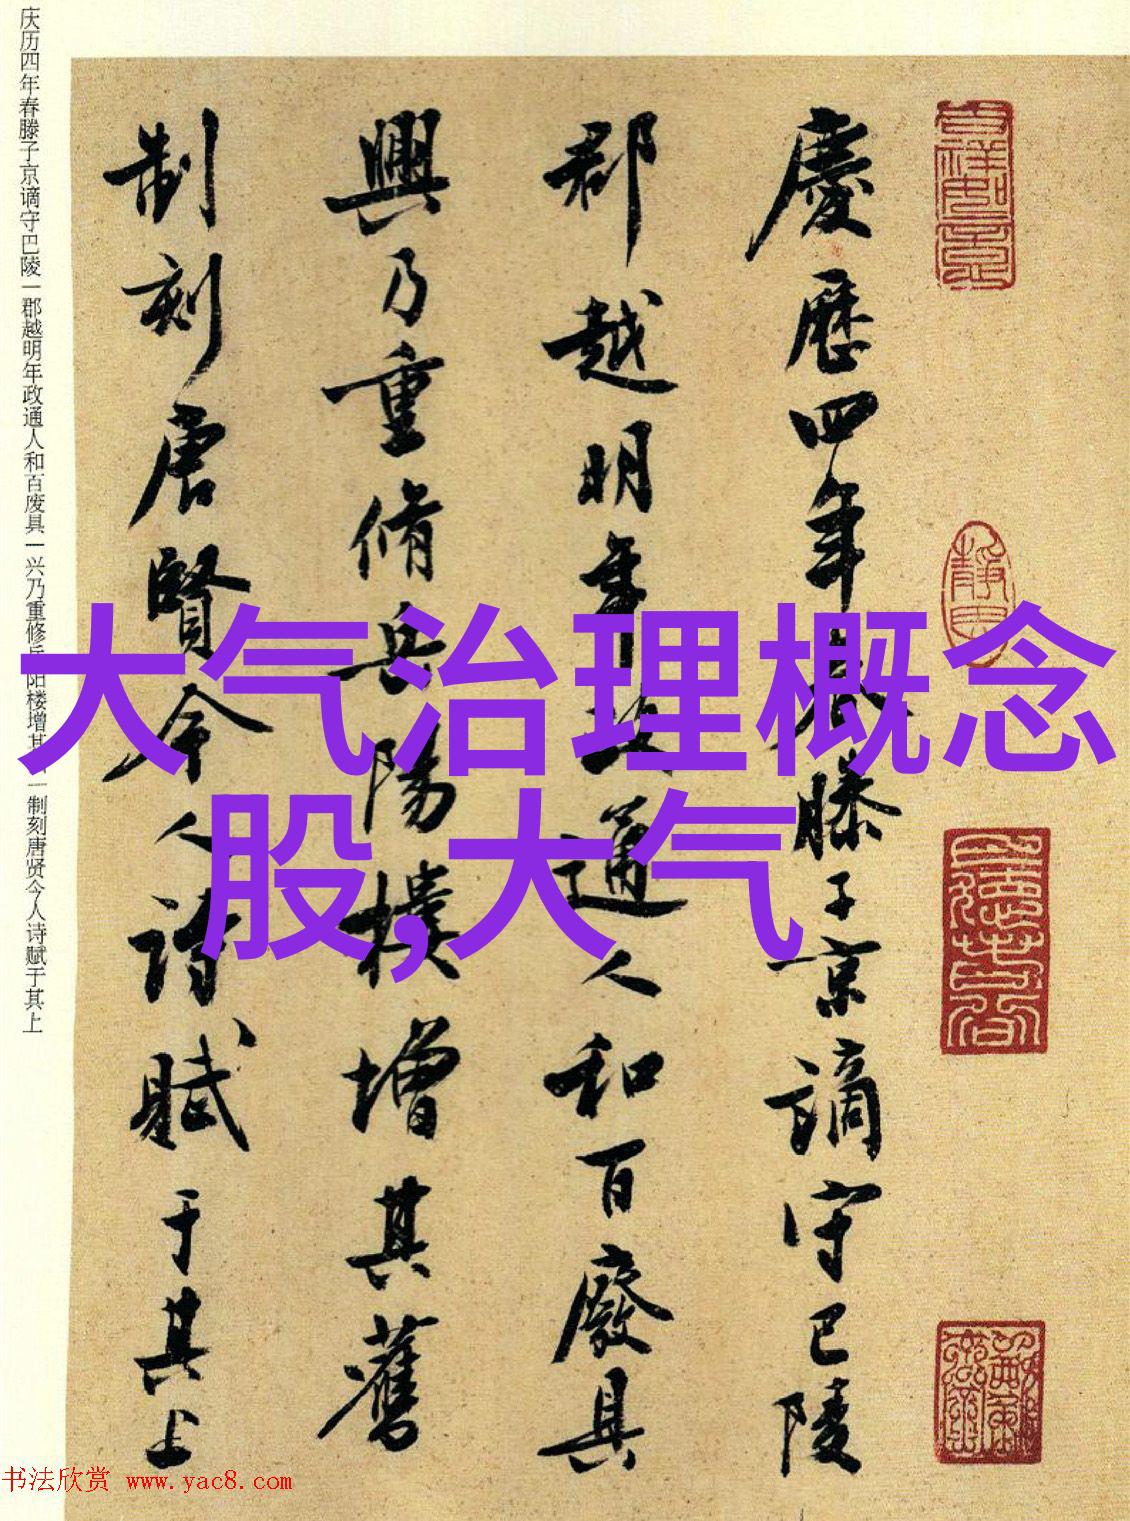 慶歷四年春滕子京謫守巴陵
郡越明年政通人和百廢具
興乃重脩岳陽樓增其舊
制刻唐賢今人詩賦于其上
庆历四年春滕子京谪守巴陵一郡越明年政通人和百废具一兴乃重修岳阳楼增其一制刻唐贤今人诗赋于其上
大气治理概念
股,大气
书法欣赏 www.yac8.com